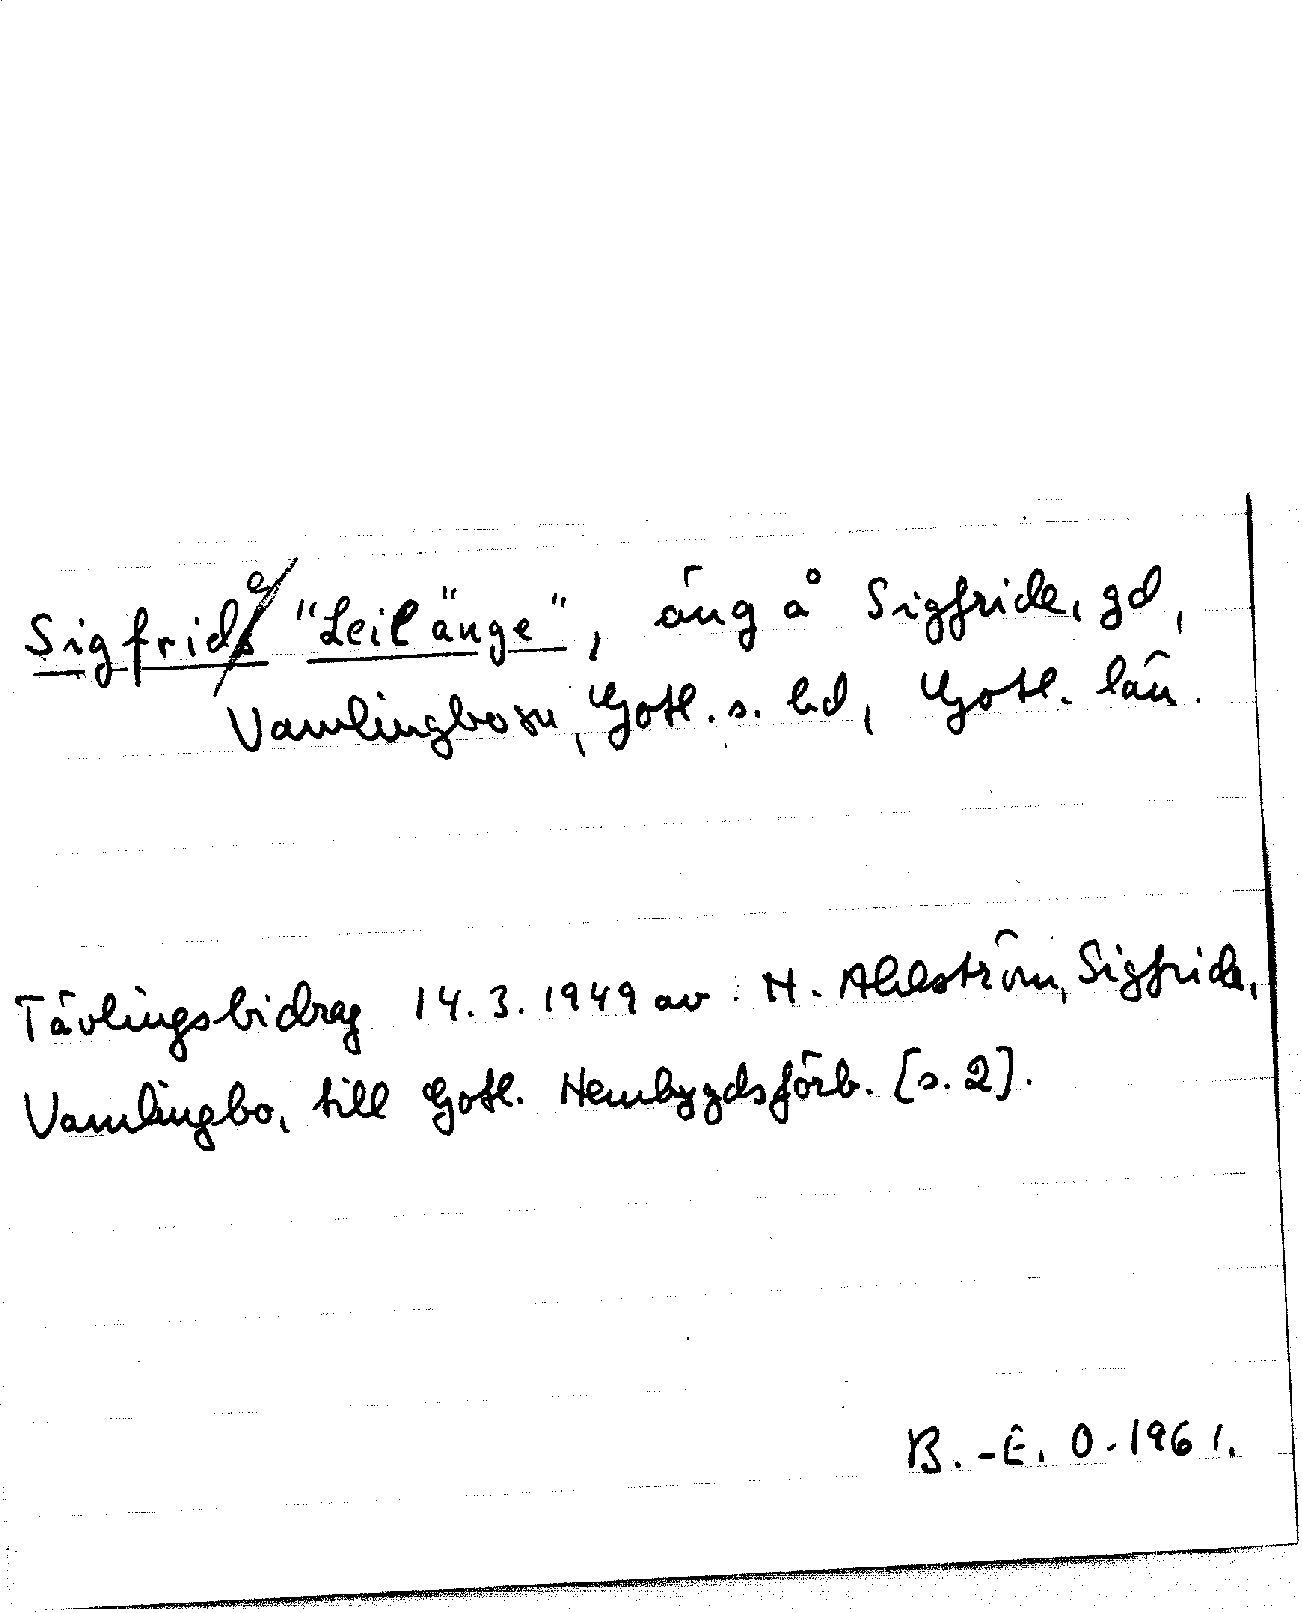 Sigfride "Leilänge", äng å Sigfride, gd,
Vamlingbosn, Gotl. s. hd, Gotl. län.
Tävlingsbidrag 14.3.1949 av H. Ahlström, Sigfride,
Vamlingbo, till Gotl. Hembygdsförb. [s. 2].
B.-E. O. 1961.